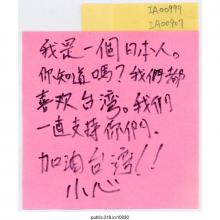 IA00999
IA00907
我是一個日本人。
你知道嗎？我們都
喜欢台湾。我們
一直支持你們.
加油台湾!!
小心
public.318.io/10930